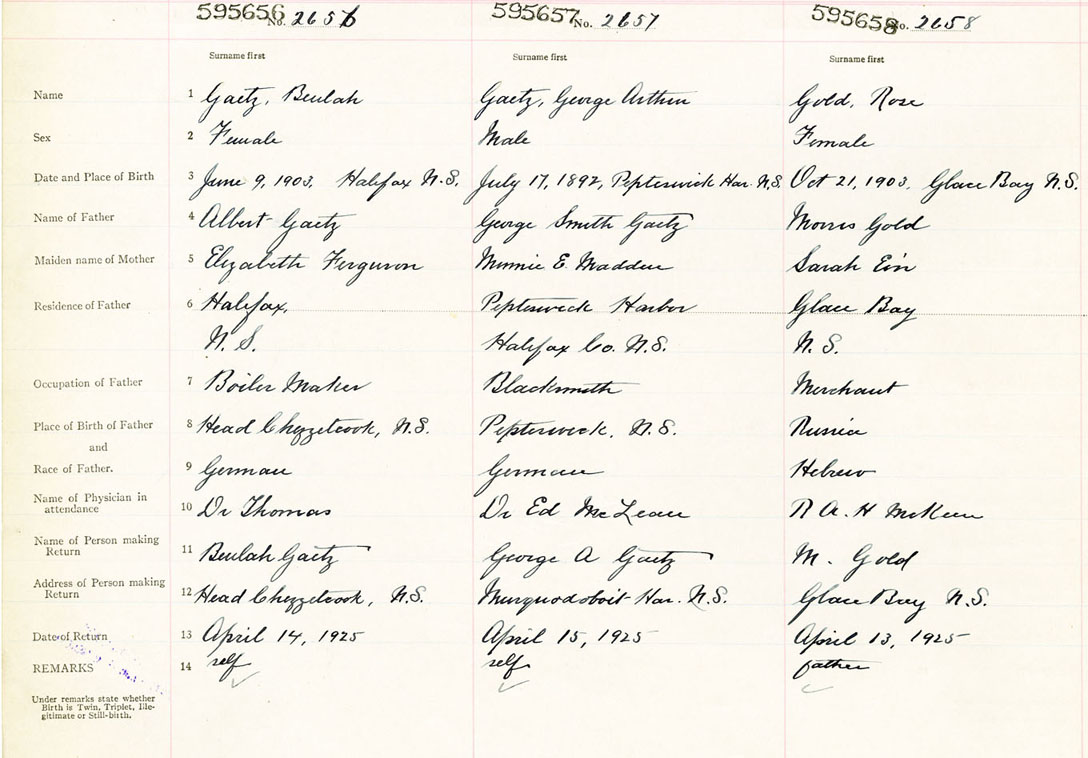 595656 No. 2656 595657 No. 2657 595658 No. 2658
Surname first Surname first Surname first
Name 1 Gaetz, Beulah Gaetz, George Arthur Gold, Rose
Sex 2 Female Male Female
Date and Place of Birth 3 June 9, 1903, Halifax N.S. July 17, 1892, Pepteswick Har. N.S. Oct 21, 1903, Glace Bay N.S.
Name of Father 4 Albert Gaetz George Smith Gaetz Morris Gold
Maiden name of Mother 5 Elizabeth Ferguson Minnie E. Madden Sarah Ein
Residence of Father 6 Halifax, Peptesweck Harbor Glace Bay
N.S. Halifax Co. N.S. N.S.
Occupation of Father 7 Boiler Maker Blacksmith Merchant
Place of Birth of Father 8 Head Chezzetcook, N.S. Peptesweck, N.S. Russia
and
Race of Father. 9 German German Hebrew
Name of Physician in
attendance 10 Dr Thomas Dr Ed McLean R A. H McKeen
Name of Person making
Return 11 Beulah Gaetz George A Gaetz M. Gold
Address of Person making
Return 12 Head Chezzetcook, N.S. Musquodoboit Har. N.S. Glace Bay N.S.
Date of Return 13 April 14, 1925 April 15, 1925 April 13, 1925
REMARKS 14 self self father
Under remarks state whether
Birth is Twin, Triplet, Ille-
gitimate or Still-birth.